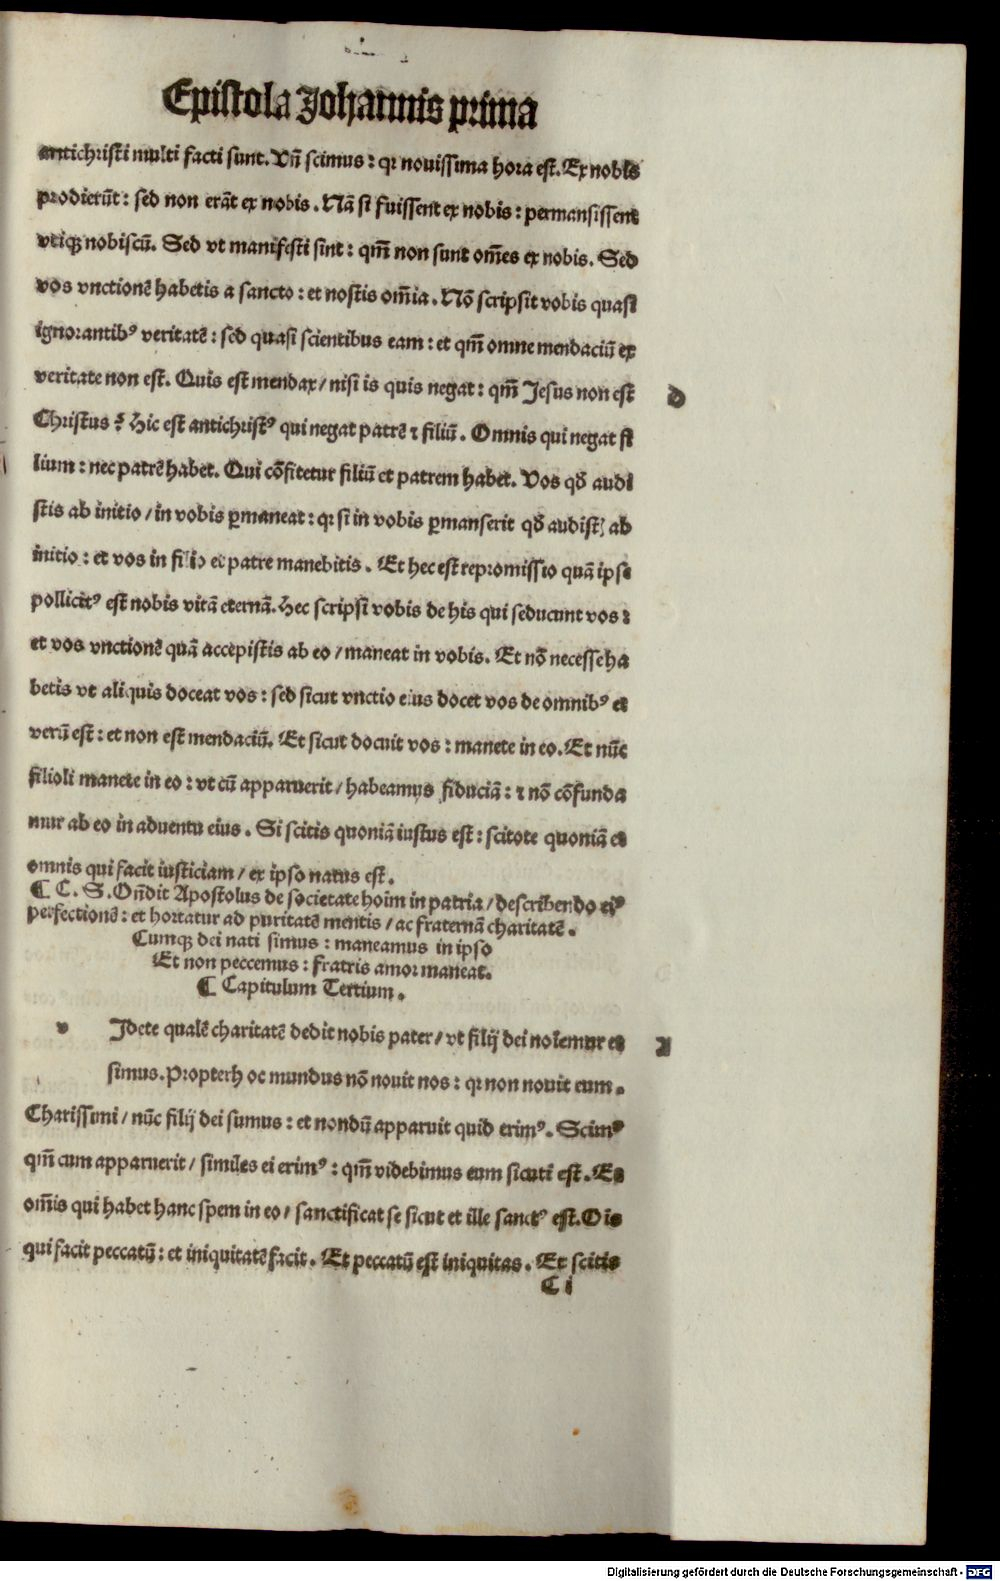 Epistola Johannis prima
antichristi multi facti sunt. Vñ scimus: qꝛ nouissima hora est. Ex nobis
prodierũt: sed non erãt ex nobis. Nã si fuissent ex nobis: permansissent
vtiqꝫ nobiscũ. Sed vt manifesti sint: qm̃ non sunt om̃es ex nobis. Sed
vos vnctionẽ habetis a sancto: et nostis om̃ia. Nõ scripsit vobis quasi
ignorantibꝰ veritatẽ: sed quasi scientibus eam: et qm̃ omne mendaciũ ex
veritate non est. Quis est mendax/ nisi is quis negat: qm̃ Jesus non est
d
Christus? Hic est antichristꝰ qui negat patrẽ ⁊ filiũ. Omnis qui negat fi
lium: nec patrẽ habet. Qui cõfitetur filiũ et patrem habet. Vos qđ audi
stis ab initio/ in vobis ꝑmaneat: qꝛ si in vobis ꝑmanserit qđ audistꝭ ab
initio: et vos in filio et patre manebitis. Et hec est repromissio quã ipse
pollicitꝰ est nobis vitã eternã. Hec scripsi vobis de his qui seducunt vos:
et vos vnctionẽ quã accepistis ab eo/ maneat in vobis. Et nõ necesse ha
betis vt aliquis doceat vos: sed sicut vnctio eius docet vos de omnibꝰ et
verũ est: et non est mendaciũ. Et sicut docuit vos: manete in eo. Et nũc
filioli manete in eo: vt cũ apparuerit/ habeamus fiduciã: ⁊ nõ cõfunda
mur ab eo in aduentu eius. Si scitis quoniã iustus est: scitote quoniã et
omnis qui facit iusticiam/ ex ipso natus est.
¶ C. S. Oñdit Apostolus de societate hoim in patria/ describendo eiꝰ
perfectionẽ: et hortatur ad puritatẽ mentis/ ac fraternã charitatẽ.
Cumqꝫ dei nati simus: maneamus in ipso
Et non peccemus: fratris amor maneat.
¶ Capitulum Tertium.
v Jdete qualẽ charitatẽ dedit nobis pater/ vt filij dei noiemur et
A
simus. Propterh oc mundus nõ nouit nos: qꝛ non nouit eum.
Charissimi/ nũc filij dei sumus: et nondũ apparuit quid erimꝰ. Scimꝰ
qm̃ cum apparuerit/ similes ei erimꝰ: qm̃ videbimus eum sicuti est. Et
om̃is qui habet hanc spem in eo/ sanctificat se sicut et ille sanctꝰ est. Ois
qui facit peccatũ: et iniquitatẽ facit. Et peccatũ est iniquitas. Et scitis
C i
Digitalisierung gefördert durch die Deutsche Forschungsgemeinschaft - DFG